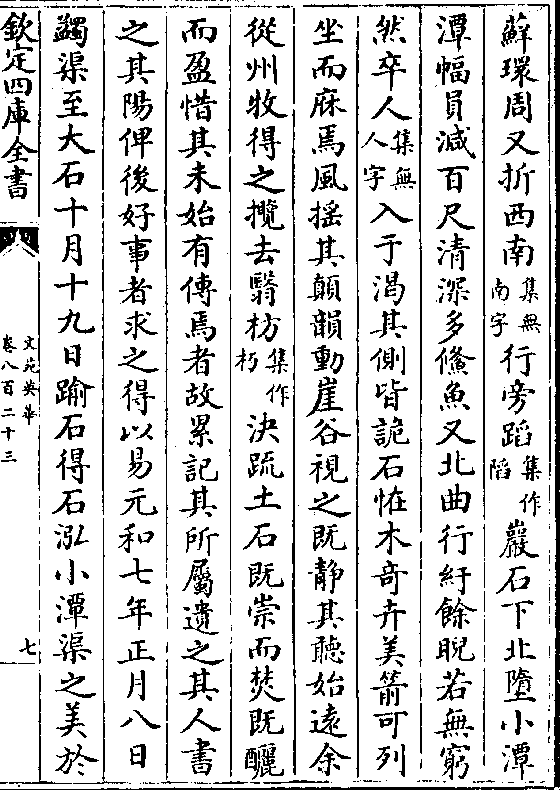 蘚環周又折西南集無南字行旁蹈集作䧟巖石下北墮小潭
潭幅員減百尺清深多鯈魚又北曲行紆餘睨若無窮
然卒人集無人字入于渴其側皆詭石怪木奇卉美箭可列
坐而庥焉風揺其顛韻動崖谷視之既静其聽始逺余
從州牧得之攬去翳枋集作朽決疏土石既崇而焚既釃
而盈惜其未始有傳焉者故累記其所屬遺之其人書
之其陽俾後好事者求之得以易元和七年正月八日
蠲渠至大石十月十九日踰石得石泓小潭渠之美於
欽定四庫全書
文苑英華
卷八百二十三
七